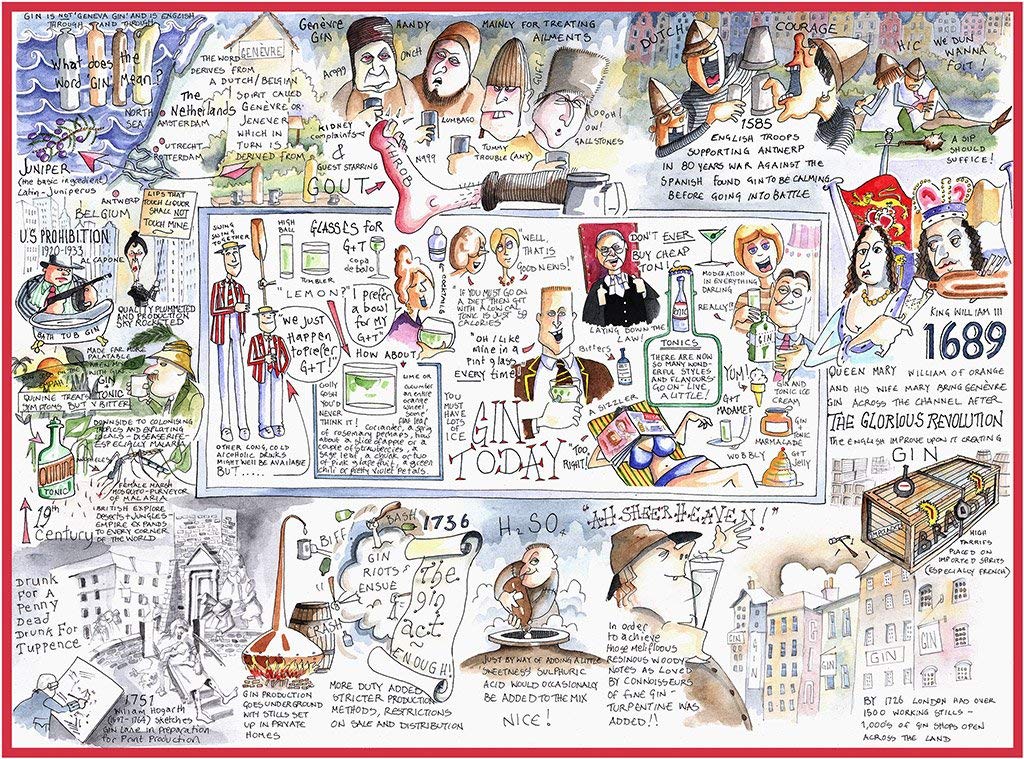 GIN IS NOT 'GENEVA GIN' AND IS ENGLISH
THROUGH AND THROUGH
What does the
Word 'GIN' Mean?
NORTH
SEA
The
Netherlands
AMSTERDAM
UTRECHT
ROTTERDAM
JUNIPER
(the basic ingredient)
Latin - Juniperus
ANTWERP
BELGIUM
GENÈVRE
THE WORD
DERIVES FROM
A DUTCH/BELGIAN
SPIRIT CALLED
GENÈVRE OR
JENEVER
WHICH IN
TURN IS
DERIVED FROM
Genèvre
Gin
HANDY
MAINLY FOR TREATING
AILMENTS
OUCH
LUMBAGO
KIDNEY
complaints
TUMMY
TROUBLE (ANY)
OOOH!
OW!
GALLSTONES
&
GUEST STARRING
GOUT
THROB
DUTCH
COURAGE
HIC
WE DUN
WANNA
FOIT!
1585
ENGLISH TROOPS
SUPPORTING ANTWERP
IN 80 YEARS WAR AGAINST THE
SPANISH FOUND GIN TO BE CALMING
BEFORE GOING INTO BATTLE
A SIP
SHOULD
SUFFICE!
KING WILLIAM III
1689
QUEEN MARY
WILLIAM OF ORANGE
AND HIS WIFE MARY BRING GENÈVRE
GIN ACROSS THE CHANNEL AFTER
THE GLORIOUS REVOLUTION
THE ENGLISH IMPROVE UPON IT CREATING
GIN
BRANDY
HIGH
TARRIFS
PLACED ON
IMPORTED SPIRITS
(ESPECIALLY FRENCH)
GIN
GIN
GIN
GIN
BY 1726 LONDON HAS OVER
1500 WORKING STILLS -
1,000'S OF GIN SHOPS OPEN
ACROSS THE LAND
"AH SHEER HEAVEN!"
In order
to achieve
those Melifluous
Resinous Woody
Notes as Loved
By Connoisseurs
of fine Gin -
Turpentine was
Added!!
H2SO4
JUST BY WAY OF ADDING A LITTLE
'SWEETNESS' SULPHURIC
ACID WOULD OCCASIONALLY
BE ADDED TO THE MIX
NICE!
1736
BASH
BIFF
CRASH
GIN
RIOTS
ENSUE
The
Gin
Act
ENOUGH!
MORE DUTY ADDED
STRICTER PRODUCTION
METHODS, RESTRICTIONS
ON SALE AND DISTRIBUTION
GIN PRODUCTION
GOES UNDERGROUND
WITH STILLS SET
UP IN PRIVATE
HOMES
DRUNK
FOR A
PENNY
DEAD
DRUNK FOR
TUPPENCE
1751
William Hogarth
(1697-1764) Sketches
Gin Lane in Preparation
for Print Production
19th
century
BRITISH EXPLORE
DESERTS & JUNGLES -
EMPIRE EXPANDS
TO EVERY CORNER
OF THE WORLD
FEMALE MARSH
MOSQUITO - PURVEYOR
OF MALARIA
TONIC
DOWNSIDE TO COLONISING
DISEASE RIFE -
ESPECIALLY MALARIA
MADE FAR MORE
PALATABLE
GIN
TONIC
QUININE TREATS
SYMPTOMS BUT V BITTER
U.S PROHIBITION
1920-1933
AL CAPONE
BATH TUB GIN
LIPS THAT
TOUCH LIQUOR
SHALL NOT
TOUCH MINE
QUALITY PLUMMETED
AND PRODUCTION
SKY ROCKETED
SWING
SWING
TOGETHER
HIGH
BALL
GLASSES FOR
G+T
TUMBLER
copa
de balo
"LEMON?"
"WE JUST
HAPPEN
TO PREFER
G+T!"
I prefer
a bowl
for my
G+T"
COCKTAILS
HOW ABOUT
OTHER LONG, COLD
ALCOHOLIC DRINKS
MIGHT WELL BE AVAILABLE
BUT.....
GOLLY
GOSH
YOU'D
NEVER
THINK IT!
LIME OR
CUCUMBER
an entire
orange
wheel
some
YOU
MUST
HAVE
LOTS
OF
ICE
"WELL,
THAT IS
GOOD NEWS!"
"IF YOU MUST GO ON
A DIET THEN G+T
WITH A LOW CAL
TONIC IS JUST 59
CALORIES"
"OH I LIKE
MINE IN A
PINT GLASS
EVERY TIME"
Bitters
GIN
TODAY
DON'T EVER
BUY CHEAP
TONIC!
LAYING DOWN THE
LAW!
TONIC
TONICS
THERE ARE NOW
SO MANY WOND-
ERFUL STYLES
AND FLAVOURS
GO ON - LIVE
A LITTLE!
MODERATION
IN EVERYTHING
DARLING
REALLY?
GIN
YUM!
GIN AND
TONIC ICE
CREAM
G+T
MADAME?
GIN
&
TONIC
MARMALADE
WOBBLY
G+T
JELLY
A SIZZLER
"TOO
RIGHT!"